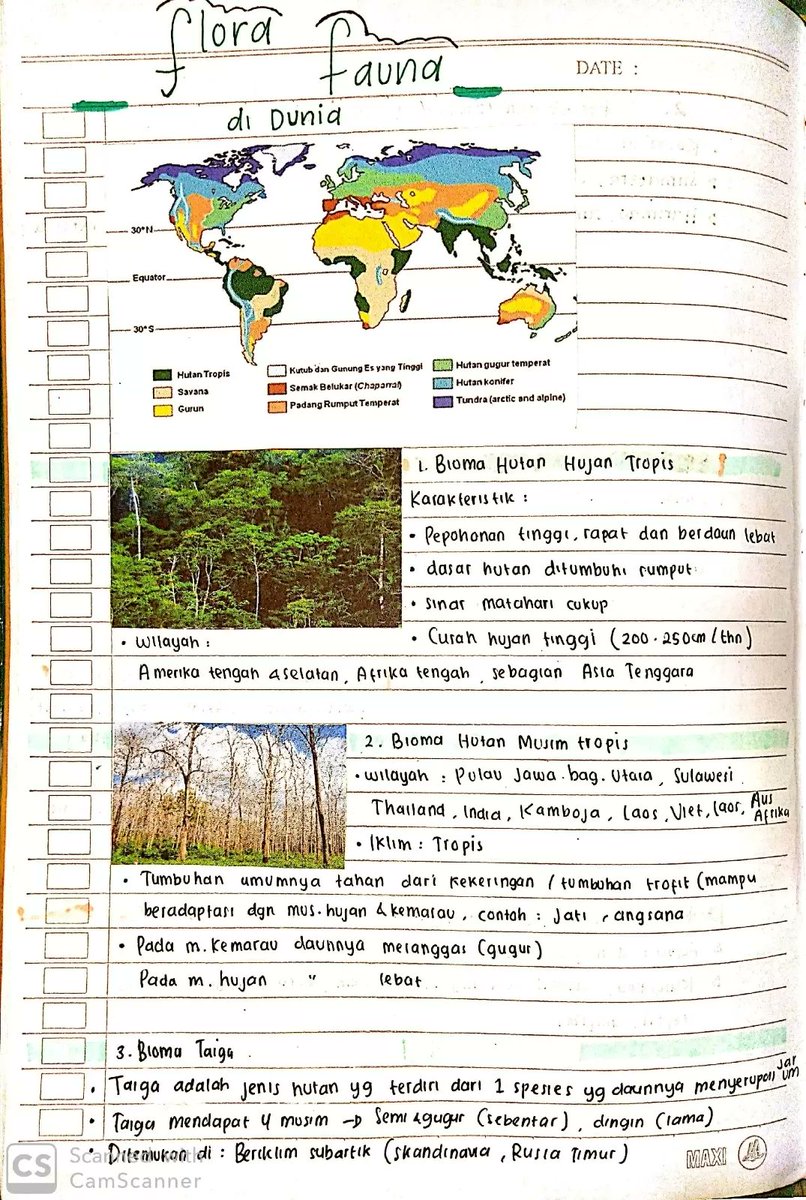 flora
fauna
DATE :
di Dunia
30°N
Equator
30°S
Hutan Tropis
Savana
Gurun
Kutub dan Gunung Es yang Tinggi
Semak Belukar (Chaparral)
Padang Rumput Temperat
Hutan gugur temperat
Hutan konifer
Tundra (arctic and alpine)
1. Bioma Hutan Hujan Tropis
Karakteristik :
• Pepohonan tinggi, rapat dan berdaun lebat
• dasar hutan ditumbuhi rumput
• sinar matahari cukup
• Curah hujan tinggi (200-250cm/thn)
• Wilayah :
Amerika tengah &selatan, Afrika tengah, sebagian Asia Tenggara
2. Bioma Hutan Musim tropis
• wilayah : Pulau Jawa bag. Utara, Sulawesi
Thailand, India, Kamboja, Laos, Viet, laos, Aus Afrika
• Iklim : Tropis
• Tumbuhan umumnya tahan dari kekeringan / tumbuhan trofit (mampu
beradaptasi dgn mus. hujan & kemarau, contoh : Jati, angsana
• Pada m. Kemarau daunnya meranggas (gugur)
Pada m. hujan " lebat
3. Bioma Taiga
• Taiga adalah jenis hutan yg terdiri dari 1 spesies yg daunnya menyerupai jarum
• Taiga mendapat 4 musim → Semi &gugur (sebentar), dingin (lama)
• Ditemukan di : Beriklim subartik (skandinavia, Rusia Timur)
MAXI
CS Scanned with
CamScanner